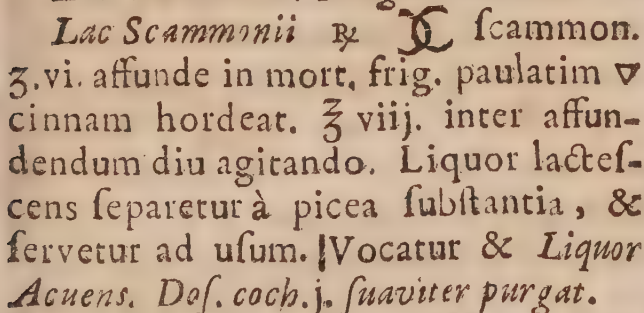 Lac Scammonii ℞ ſcammon.
ʒ.vi. affunde in mort. frig. paulatim 🜄
cinnam hordeat. ℥ viij. inter affun-
dendum diu agitando. Liquor lacteſ-
cens ſeparetur à picea ſubſtantia, &
ſervetur ad uſum. |Vocatur & Liquor
Acuens. Doſ. coch.j. ſuaviter purgat.